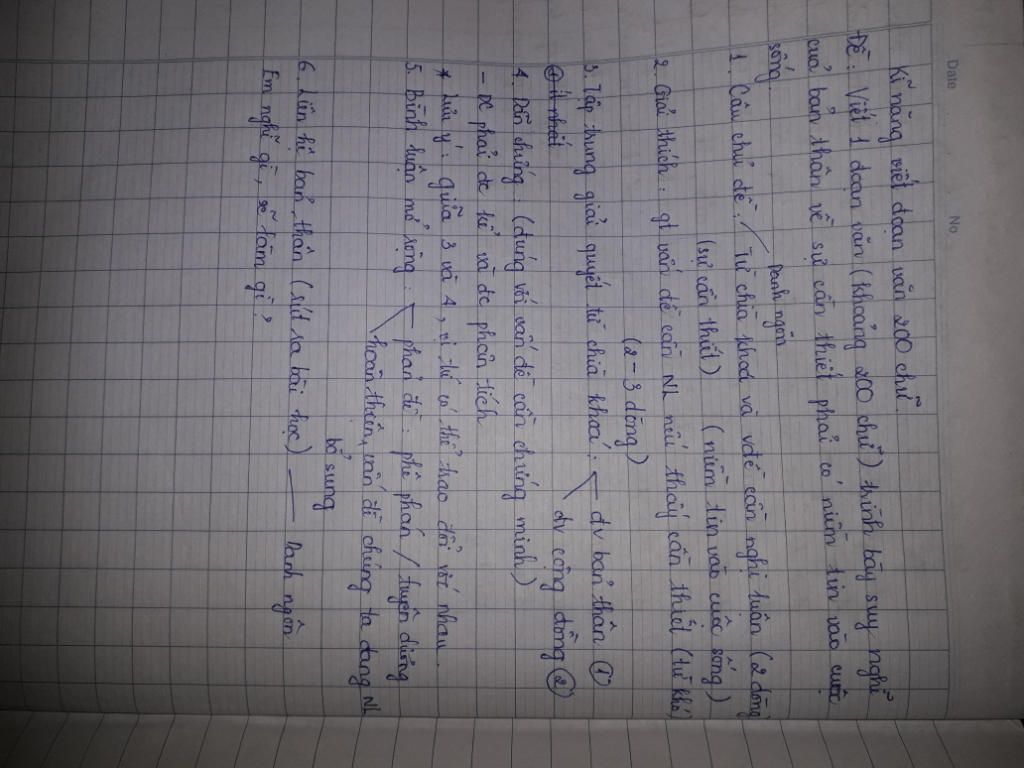 Date No.
Kĩ năng viết đoạn văn 200 chữ.
Đề: Viết 1 đoạn văn (khoảng 200 chữ) trình bày suy nghĩ
của bản thân về sự cần thiết phải có niềm tin vào cuộc
sống.
Danh ngôn
1. Câu chủ đề: từ chìa khoá và vđề cần nghị luận (2 dòng)
(sự cần thiết) (niềm tin vào cuộc sống)
2. Giải thích: gt vấn đề cần NL nếu thấy cần thiết (từ khó)
(2-3 dòng)
3. Tập trung giải quyết từ chìa khoá: đv bản thân ①
đv cộng đồng ②
4. Dẫn chứng: (đúng với vấn đề cần chứng minh)
- DC phải đc kể và đc phân tích
* Lưu ý: giữa 3 và 4, vị trí có thể trao đổi với nhau.
5. Bình luận mở rộng: phản đề: phê phán / tuyên dương
hoàn thiện, vấn đề chúng ta đang NL
bổ sung
6. Liên hệ bản thân (rút ra bài học) Danh ngôn
Em nghĩ gì, sẽ làm gì?